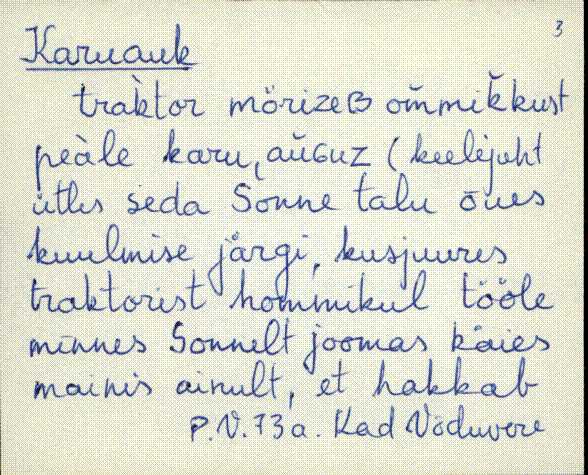 3
Karuauk
tràktor mörizeʙ om̆mik̆kust
peàle karu, aŭɢuz (keelejuht
ütles seda Sonne talu õues
kuulmise järgi, kusjuures
traktorist hommikul tööle
minnes Sonnelt joomas käies
mainis ainult, et hakkab
P.V. 73 a. Kad Võduvere